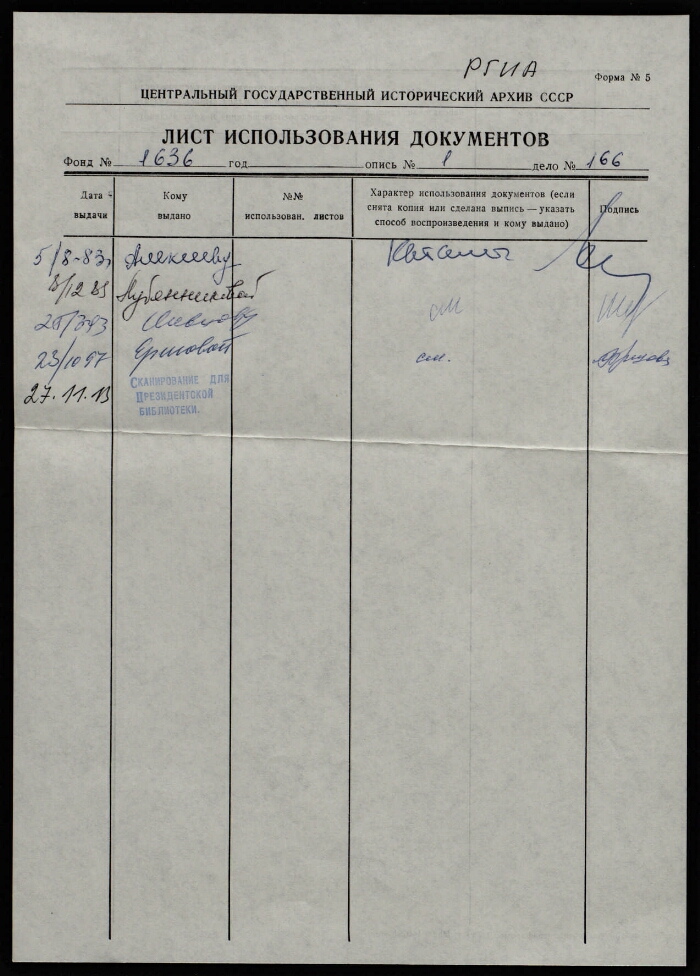 РГИА
Форма № 5
ЦЕНТРАЛЬНЫЙ ГОСУДАРСТВЕННЫЙ ИСТОРИЧЕСКИЙ АРХИВ СССР
ЛИСТ ИСПОЛЬЗОВАНИЯ ДОКУМЕНТОВ
Фонд № 1636 год опись № 1 дело № 166
Дата выдачи
Кому выдано
№№ использован. листов
Характер использования документов (если снята копия или сделана выпись — указать способ воспроизведения и кому выдано)
Подпись
5/8-83 Алексееву
Лубенниковой см
см.
23/10 97 Ершовой см.
27.11.13 СКАНИРОВАНИЕ ДЛЯ
ПРЕЗИДЕНТСКОЙ
БИБЛИОТЕКИ.